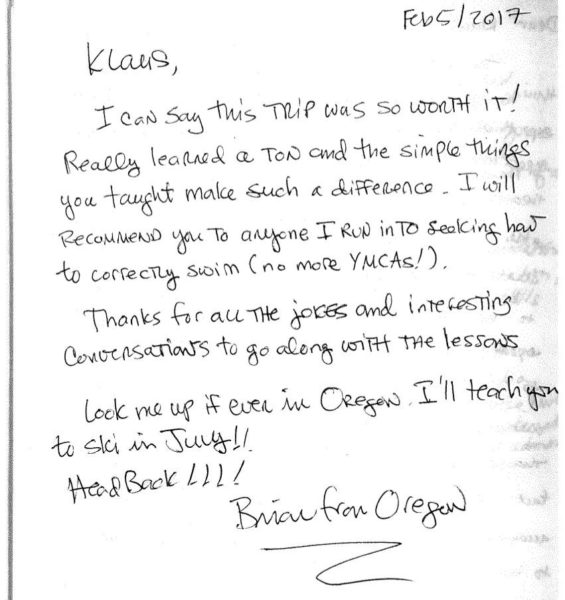 Feb 5/2017
Klaus,
I can say this TRIP was so worth it!
Really learned a TON and the simple things
you taught make such a difference. I will
RECOMMEND you TO anyone I RUN INTO seeking how
to correctly swim (no more YMCAs!).
Thanks for all THE jokes and interesting
Conversations to go along WITH THE lessons
Look me up if ever in Oregon. I'll teach you
to ski in July!!
Head Back !!!!
Brian from Oregon